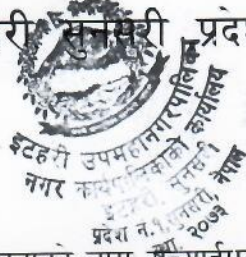 री सुनसरी प्रदेश
इटहरी उपमहानगरपालिका
नगर कार्यपालिकाको कार्यालय
इटहरी, सुनसरी
प्रदेश नं.१, सुनसरी, नेपाल
स्था. २०७३